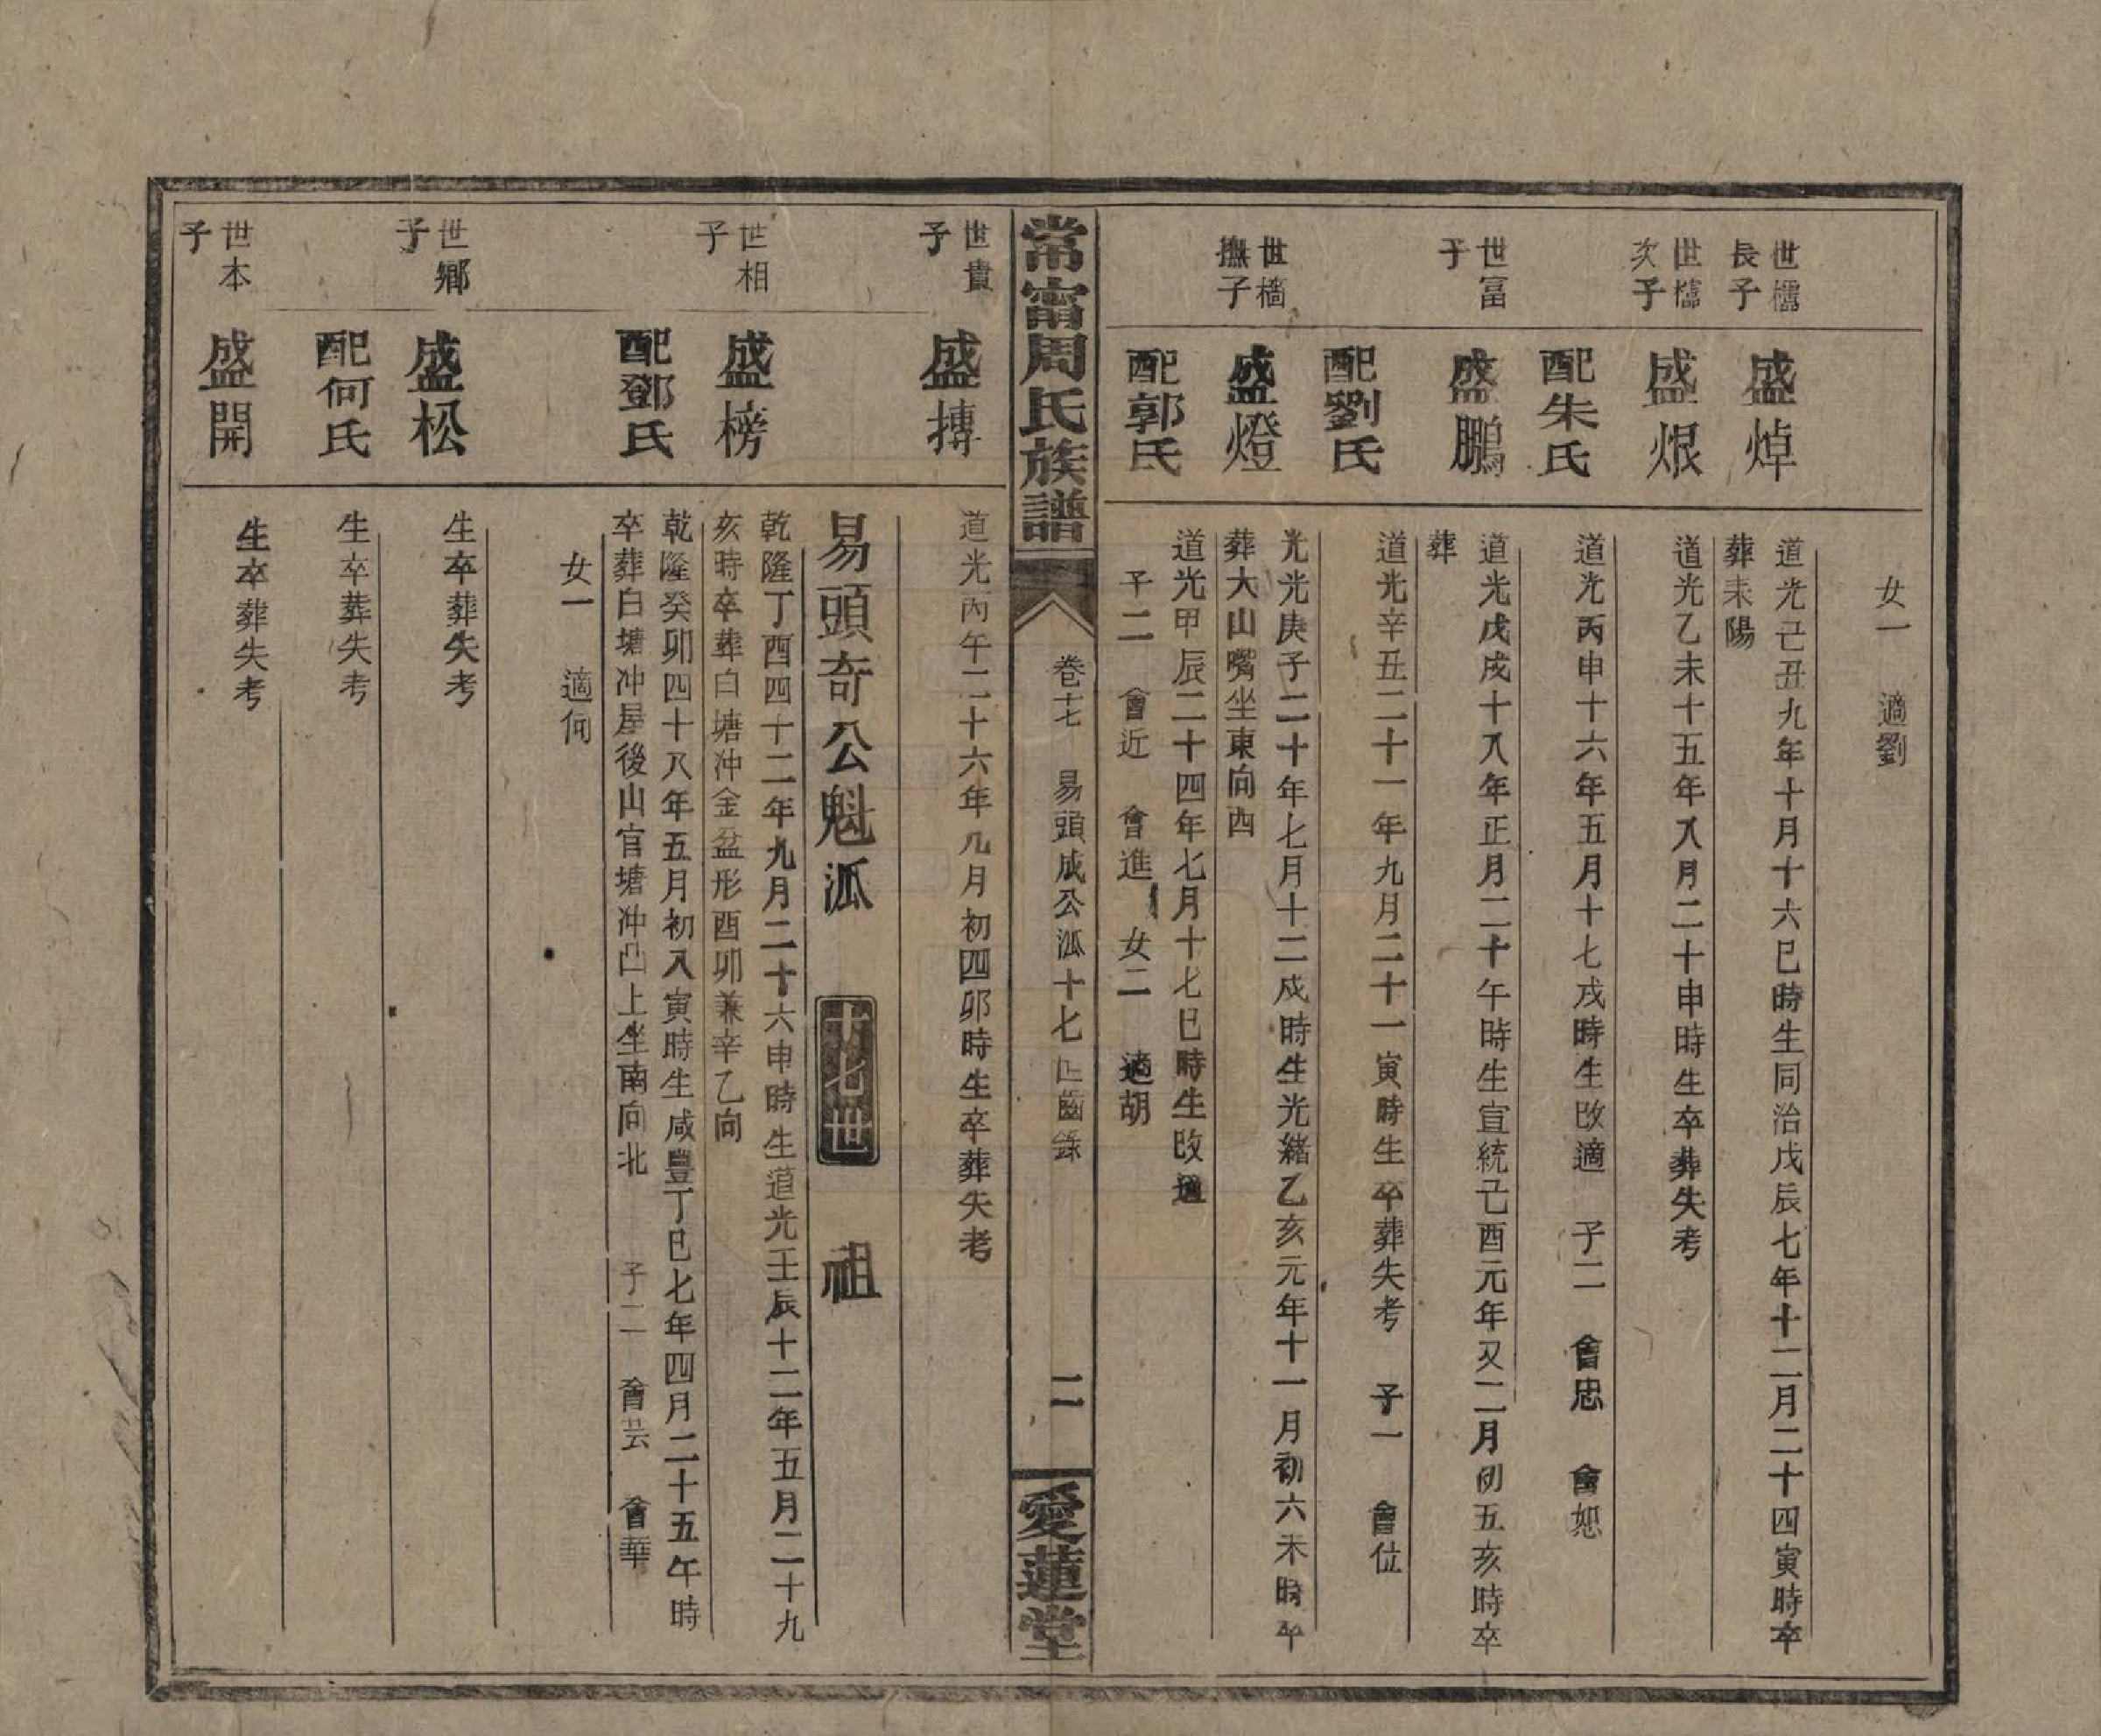 女一　適劉
世檽長子
盛焯
道光己丑九年十月十六巳時生同治戊辰七年十二月二十四寅時卒
葬耒陽
世檽次子
盛烺
道光乙未十五年八月二十申時生卒葬失考
配朱氏
道光丙申十六年五月十七戌時生改適　子二　會忠　會恕
世富子
盛鵬
道光戊戌十八年正月二十午時生宣統己酉元年又二月初五亥時卒
葬
配劉氏
道光辛丑二十一年九月二十一寅時生卒葬失考　子一　會位
世檣撫子
盛燈
光光庚子二十年七月十二戌時生光緒乙亥元年十一月初六未時卒
葬大山嘴坐東向西
配郭氏
道光甲辰二十四年七月十七巳時生改適
子二　會近　會進　女二　適胡
常甯周氏族譜
卷十七　易頭成公派十七世齒錄
二
愛蓮堂
世貴子
盛摶
道光丙午二十六年九月初四卯時生卒葬失考
易頭奇公魁派　十七世　祖
世相子
盛榜
乾隆丁酉四十二年九月二十六申時生道光壬辰十二年五月二十九
亥時卒葬白塘冲金盆形酉卯兼辛乙向
配鄧氏
乾隆癸卯四十八年五月初八寅時生咸豐丁巳七年四月二十五午時
卒葬白塘冲屋後山官塘冲凸上坐南向北　子二　會芸　會華
女一　適何
世鄉子
盛松
生卒葬失考
配何氏
生卒葬失考
世本子
盛開
生卒葬失考